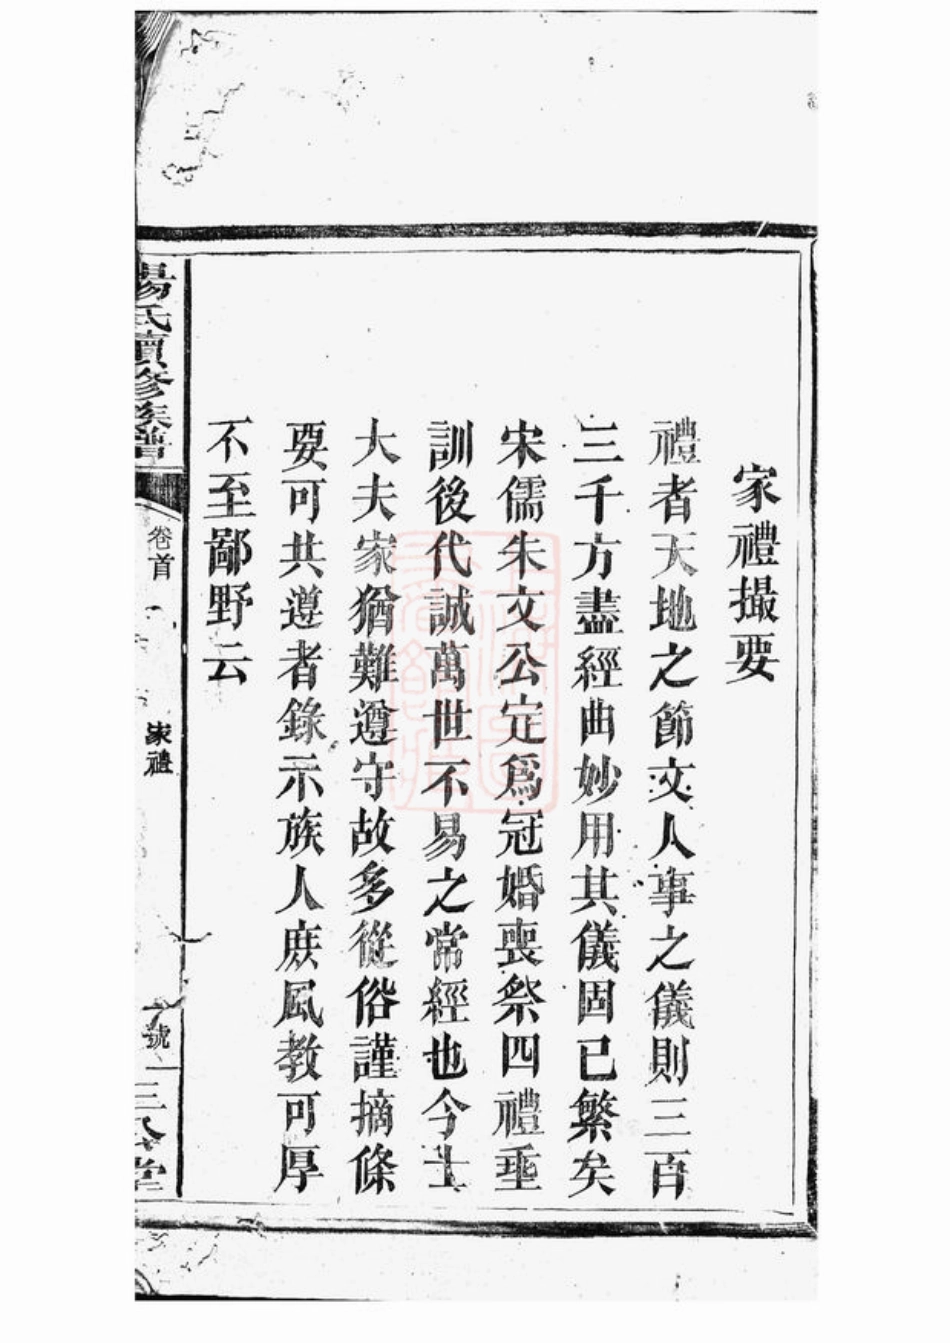 家禮撮要
禮者天地之節文人事之儀則三百
三千方盡經曲妙用其儀固已繁矣
宋儒朱文公定爲冠婚喪祭四禮垂
訓後代誠萬世不易之常經也今士
大夫家猶難遵守故多從俗謹摘條
要可共遵者錄示族人庶風教可厚
不至鄙野云
楊氏續修族譜
卷首
家禮
號